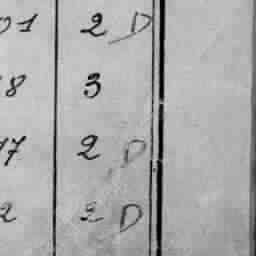 01 2 D
8 3
17 2 D
2 2 D